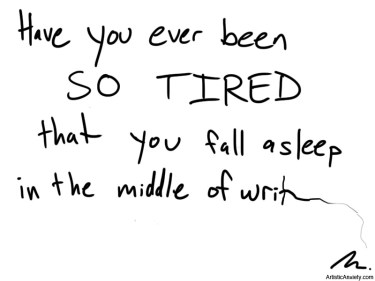 Have you ever been
SO TIRED
that you fall asleep
in the middle of writ
ArtisticAnxiety.com